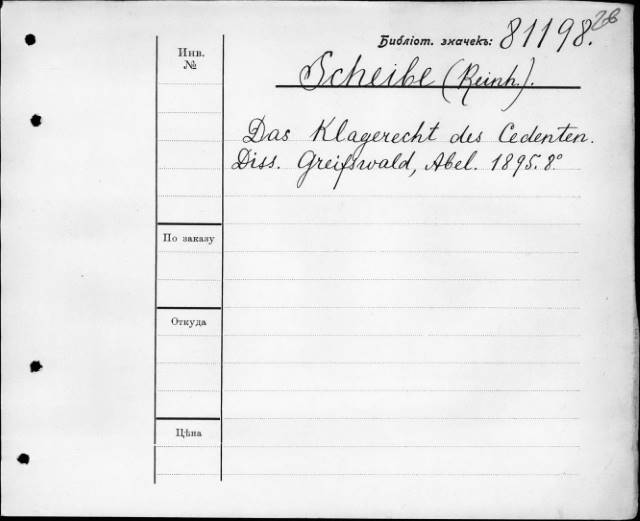 Библіот. значекъ: 81198.
Инв.
№
Scheibe (Reinh.).
Das Klagerecht des Cedenten.
Diss. Greifswald, Abel. 1895. 8°
По заказу
Откуда
Цѣна